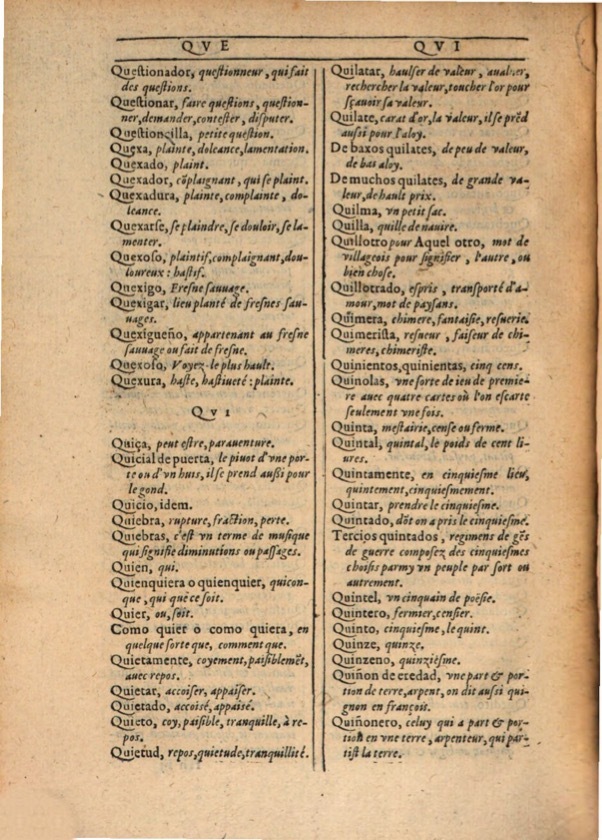 QVE
Questionador, questionneur, qui fait
des questions.
Questionar, faire questions, question-
ner, demander, contester, disputer.
Questioncilla, petite question.
Quexa, plainte, doleance, lamentation.
Quexado, plaint.
Quexador, cōplaignant, qui se plaint.
Quexadura, plainte, complainte, do-
leance.
Quexarse, se plaindre, se douloir, se la-
menter.
Quexoso, plaintif, complaignant, dou-
loureux: hastif.
Quexigo, Fresne sauuage.
Quexigar, lieu planté de fresnes sau-
uages.
Quexigueño, appartenant au fresne
sauuage ou fait de fresne.
Quexoso, Voyez le plus hault.
Quexura, haste, hastiueté: plainte.
QVI
Quiça, peut estre, parauenture.
Quicial de puerta, le piuot d'vne por-
te ou d'vn huis, il se prend aussi pour
le gond.
Quicio, idem.
Quiebra, rupture, fraction, perte.
Quiebras, c'est vn terme de musique
qui signifie diminutions ou passages.
Quien, qui.
Quienquiera o quienquier, quicon-
que, qui que ce soit.
Quier, ou, soit.
Como quier o como quiera, en
quelque sorte que, comment que.
Quietamente, coyement, paisiblemēt,
auec repos.
Quietar, accoiser, appaiser.
Quietado, accoisé, appaisé.
Quieto, coy, paisible, tranquille, à re-
pos.
Quietud, repos, quietude, tranquillité.
QVI
Quilatar, haulser de valeur, aualuer,
rechercher la valeur, toucher l'or pour
sçauoir sa valeur.
Quilate, carat d'or, la valeur, il se prēd
aussi pour l'aloy.
De baxos quilates, de peu de valeur,
de bas aloy.
De muchos quilates, de grande va-
leur, de hault prix.
Quilma, vn petit sac.
Quilla, quille de nauire.
Quillotro pour Aquel otro, mot de
villageois pour signifier, l'autre, ou
bien chose.
Quillotrado, espris, transporté d'a-
mour, mot de paysans.
Quimera, chimere, fantaisie, resuerie.
Quimerista, resueur, faiseur de chi-
meres, chimeriste.
Quinientos, quinientas, cinq cens.
Quinolas, vne sorte de ieu de premie-
re auec quatre cartes où l'on escarte
seulement vne fois.
Quinta, mestairie, cense ou ferme.
Quintal, quintal, le poids de cent li-
ures.
Quintamente, en cinquiesme lieu,
quintement, cinquiesmement.
Quintar, prendre le cinquiesme.
Quintado, dōt on a pris le cinquiesme.
Tercios quintados, regimens de gēs
de guerre composez des cinquiesmes
choisis parmy vn peuple par sort ou
autrement.
Quintel, vn cinquain de poësie.
Quintero, fermier, censier.
Quinto, cinquiesme, le quint.
Quinze, quinze.
Quinzeno, quinziesme.
Quiñon de eredad, vne part & por-
tion de terre, arpent, on dit aussi qui-
gnon en françois.
Quiñonero, celuy qui a part & por-
tion en vne terre, arpenteur, qui par-
tist la terre.